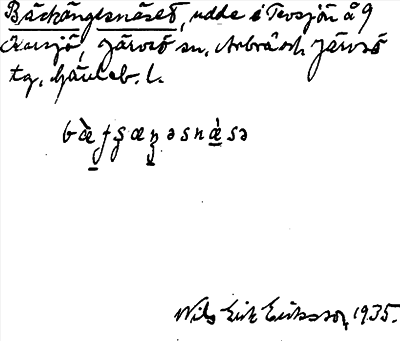 Bäckängesnäset, udde i Tevsjön å 9
Karsjö, Järvsö sn, Arbrå och Järvsö
tg, Gävleb. l.
Nils Erik Eriksson, 1935.